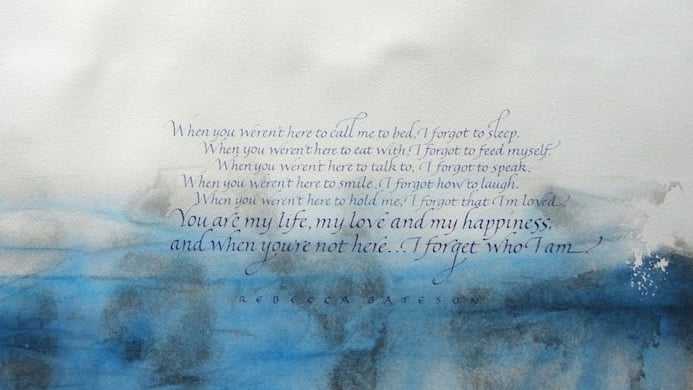 When you weren't here to call me to bed, I forgot to sleep.
When you weren't here to eat with, I forgot to feed myself.
When you weren't here to talk to, I forgot to speak.
When you weren't here to smile, I forgot how to laugh.
When you weren't here to hold me, I forgot that I'm loved.
You are my life, my love and my happiness,
and when you're not here... I forget who I am.
REBECCA BATESON